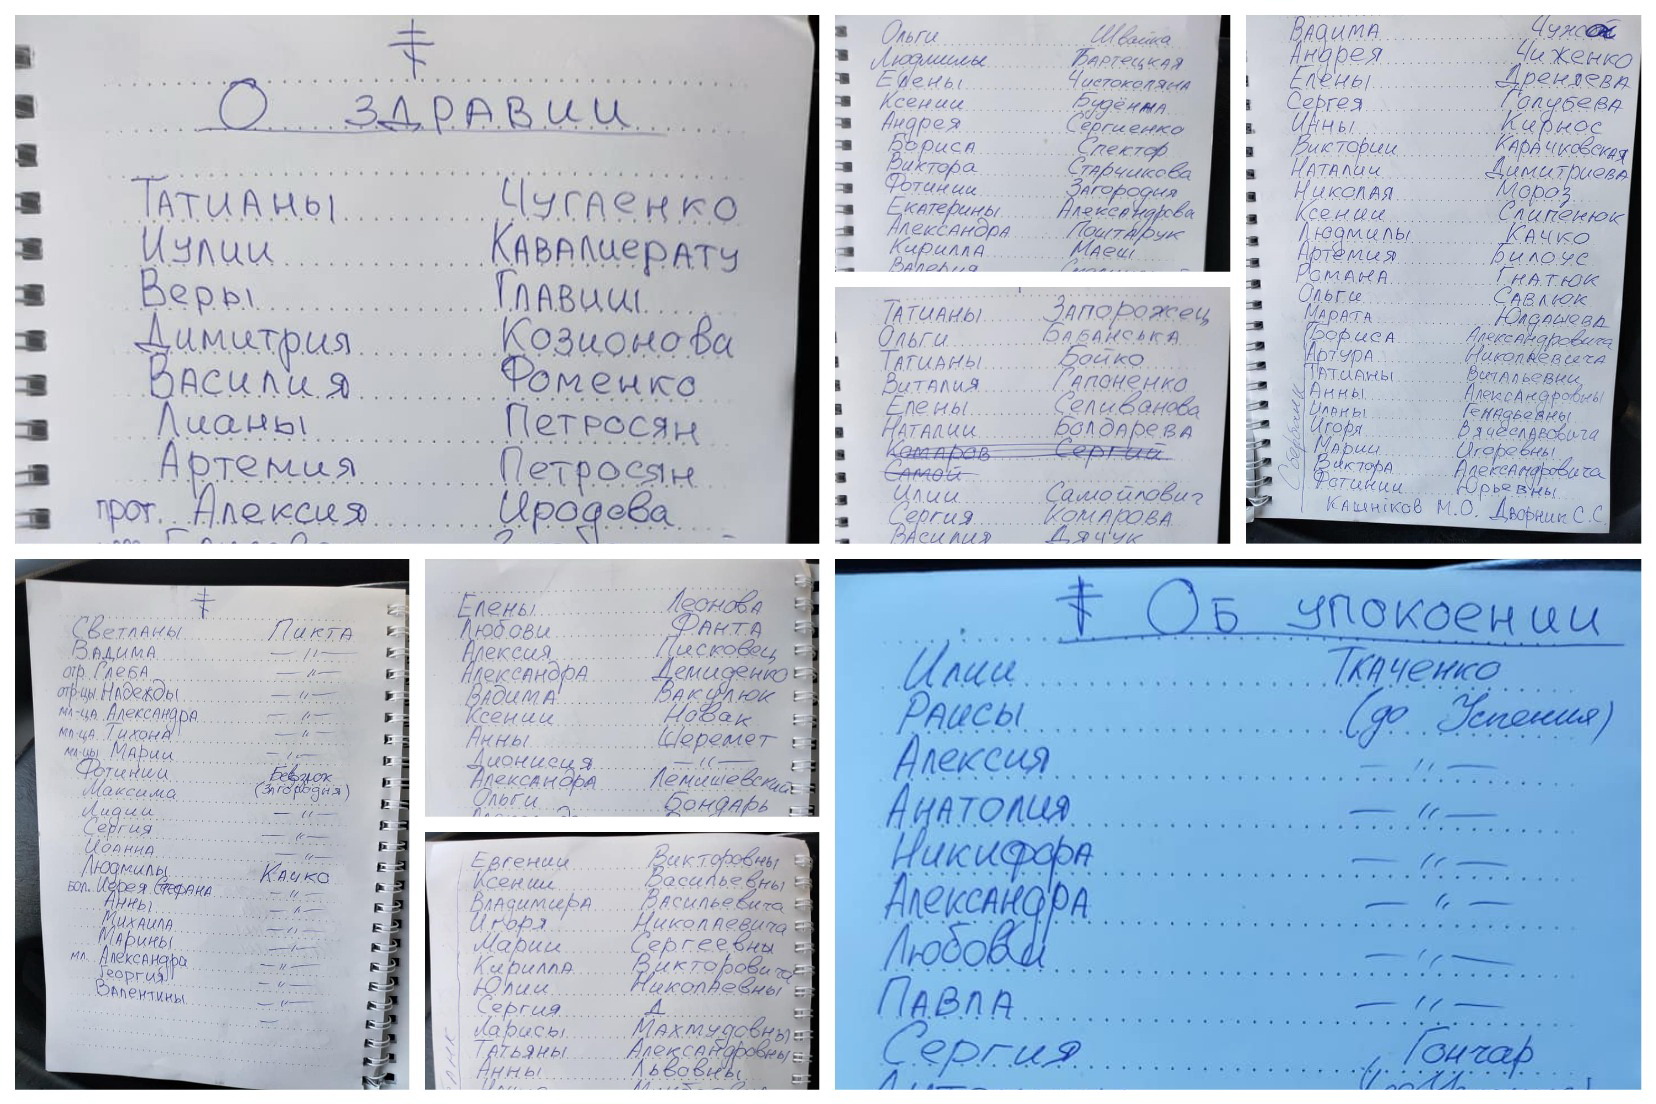 О здравии
Татианы Чугаенко
Иулии Кавалиерату
Веры Главиш
Димитрия Козионова
Василия Фоменко
Лианы Петросян
Артемия Петросян
прот. Алексия Иродова
Ольги Швайка
Людмилы Бартецкая
Елены Чистоколяна
Ксении Будённа
Андрея Сергиенко
Бориса Спектор
Виктора Старчикова
Фотинии Загородня
Екатерины Александрова
Александра Поштарук
Кирилла Маеш
Валерия
Татианы Запорожец
Ольги Бабанська
Татианы Бойко
Виталия Гапоненко
Елены Селиванова
Наталии Болдарева
Комаров Сергий
Самой
Илии Самойлович
Сергия Комарова
Василия Дячук
Вадима
Андрея Чиженко
Елены Дреняева
Сергея Голубева
Инны Кирнос
Виктории Карачковская
Наталии Димитриева
Николая Мороз
Ксении Слипенюк
Людмилы Качко
Артемия Билоус
Романа Гнатюк
Ольги Савлюк
Марата Юлдашева
Бориса Александровича
Артура Николаевича
Татианы Витальевны
Анны Александровны
Иланы Генадьевны
Игоря Вячеславовича
Марии Игоревны
Виктора Александровича
Фотинии Юрьевны
Кашніков М.О. Дворник С.С.
Светланы Пикта
Вадима — 〃 —
отр. Глеба — 〃 —
отр-цы Надежды — 〃 —
мл-ца Александра — 〃 —
мл-ца Тихона — 〃 —
мл-цы Марии — 〃 —
Фотинии Бевзюк
Максима (Загородня)
Лидии — 〃 —
Сергия — 〃 —
Иоанна — 〃 —
Людмилы Качко
бол. Иерея Стефана — 〃 —
Анны — 〃 —
Михаила — 〃 —
Марины — 〃 —
мл. Александра — 〃 —
Георгия — 〃 —
Валентины — 〃 —
Елены Леонова
Любови Фанта
Алексия Писковец
Александра Демиденко
Вадима Вакулюк
Ксении Новак
Анны Шеремет
Дионисия — 〃 —
Александра Лемишевский
Ольги Бондарь
Евгении Викторовны
Ксении Васильевны
Владимира Васильевича
Игоря Николаевича
Марии Сергеевны
Кирилла Викторовича
Юлии Николаевны
Сергия Д
Ларисы Махмудовны
Татьяны Александровны
Анны Львовны
Об упокоении
Илии Ткаченко
Раисы (до Успения)
Алексия — 〃 —
Анатолия — 〃 —
Никифора — 〃 —
Александра — 〃 —
Любови — 〃 —
Павла — 〃 —
Сергия Гончар